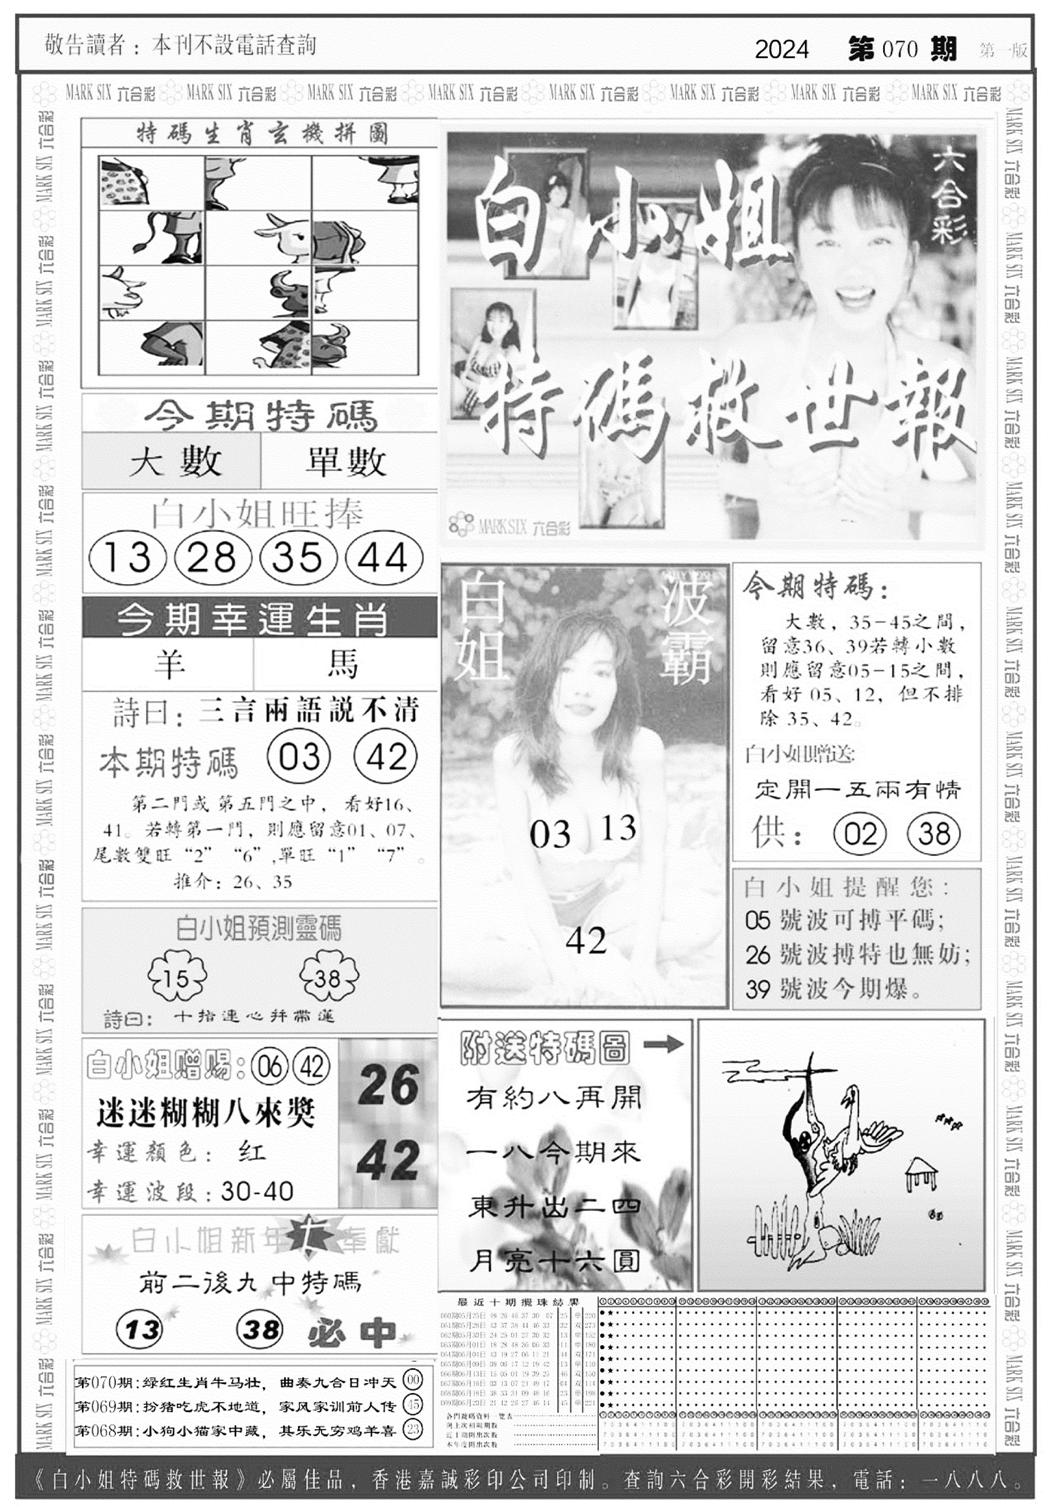 敬告讀者：本刊不設電話查詢
2024 第070期 第一版
MARK SIX 六合彩 MARK SIX 六合彩 MARK SIX 六合彩 MARK SIX 六合彩 MARK SIX 六合彩 MARK SIX 六合彩 MARK SIX 六合彩 MARK SIX 六合彩
特碼生肖玄機拼圖
今期特碼
大數 單數
白小姐旺捧
13 28 35 44
今期幸運生肖
羊 馬
詩曰：三言兩語説不清
本期特碼 03 42
第二門或第五門之中，看好16、
41。若轉第一門，則應留意01、07、
尾數雙旺“2”“6”,單旺“1”“7”。
推介：26、35
白小姐預測靈碼
15 38
詩曰：十指連心幷帶蓮
白小姐赠赐：06 42
迷迷糊糊八來獎
幸運顏色：红
幸運波段：30-40
26
42
白小姐新年大奉獻
前二後九中特碼
13 38 必中
第070期:绿红生肖牛马壮，曲奏九合日冲天 00
第069期:扮猪吃虎不地道，家风家训前人传 45
第068期:小狗小猫家中藏，其乐无穷鸡羊喜 23
白小姐
六合彩
特碼救世報
MARK SIX 六合彩
白姐
波霸
03 13
42
今期特碼：
大數，35-45之間，
留意36、39若轉小數
則應留意05-15之間，
看好05、12，但不排
除35、42。
白小姐贈送:
定開一五兩有情
供：02 38
白小姐提醒您：
05 號波可搏平碼；
26 號波搏特也無妨；
39 號波今期爆。
附送特碼圖
有約八再開
一八今期來
東升出二四
月亮十六圓
最近十期攪珠結果
《白小姐特碼救世報》必屬佳品，香港嘉誠彩印公司印制。查詢六合彩開彩結果，電話：一八八八。